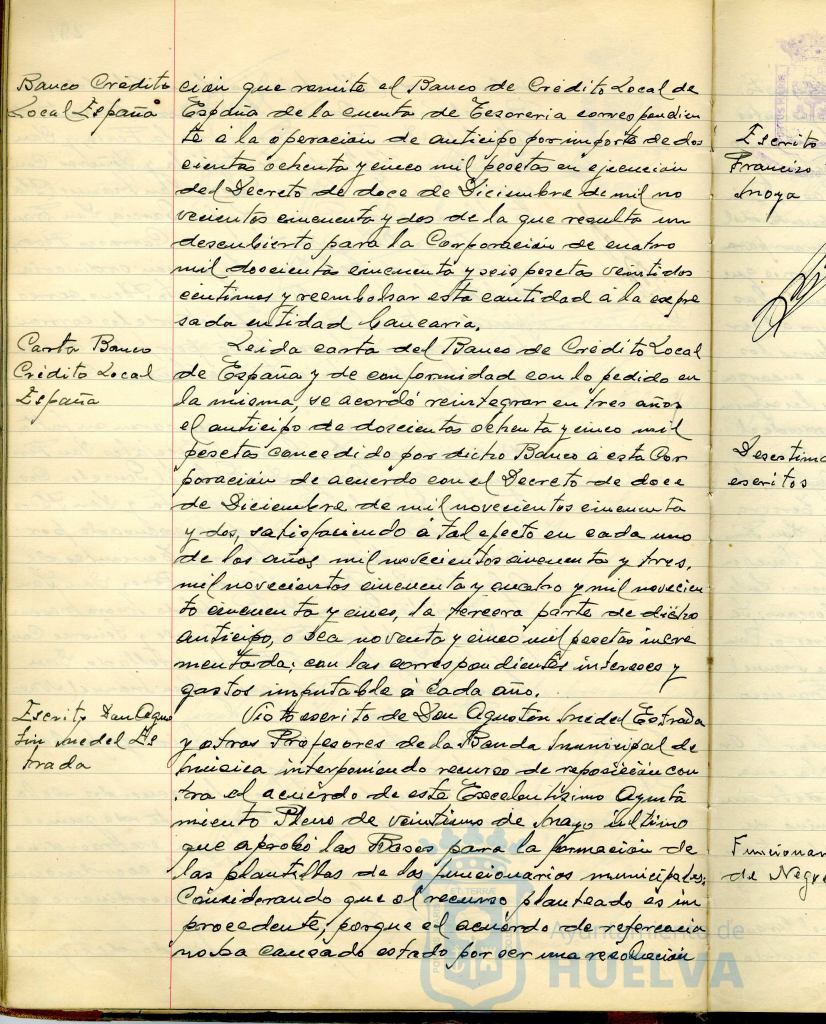 Banco Crédito
Local España
ción que remite el Banco de Crédito Local de
España de la cuenta de Tesoreria correspondien
te á la operación de anticipo por importe de dos
cientas ochenta y cinco mil pesetas en ejecución
del Decreto de doce de Diciembre de mil no
vecientos cincuenta y dos de la que resulta un
descubierto para la Corporación de cuatro
mil doscientas cincuenta y seis pesetas veintidos
centimos y reembolsar esta cantidad á la expre
sada entidad bancaria.
Carta Banco
Crédito Local
España
Leida carta del Banco de Crédito Local
de España y de conformidad con lo pedido en
la misma, se acordó reintegrar en tres años
el anticipo de doscientas ochenta y cinco mil
pesetas concedido por dicho Banco a esta Cor
poración de acuerdo con el Decreto de doce
de Diciembre de mil novecientos cincuenta
y dos, satisfaciendo á tal efecto en cada uno
de los años mil novecientos cincuenta y tres,
mil novecientos cincuenta y cuatro y mil novecien
to cincuenta y cinco, la tercera parte de dicho
anticipo, o sea noventa y cinco mil pesetas incre
mentada; con las correspondientes intereses y
gastos imputable á cada año.
Escrito Don Agus
tin Medel Es
trada
Visto escrito de Don Agustin Medel Estrada
y otros Profesores de la Banda Municipal de
Música interponiendo recurso de reposición con
tra el acuerdo de este Excelentisimo Ayunta
miento Pleno de veintiuno de Mayo último
que aprobó las Bases para la formación de
las plantillas de los funcionarios municipales;
Considerando que el recurso planteado es im
procedente; porque el acuerdo de referencia
no ha causado estado por ser una resolución
Escrito
Francisco
Moya
Desestima
escritos
Funcionar
de Negre
Ayuntamiento de
HUELVA